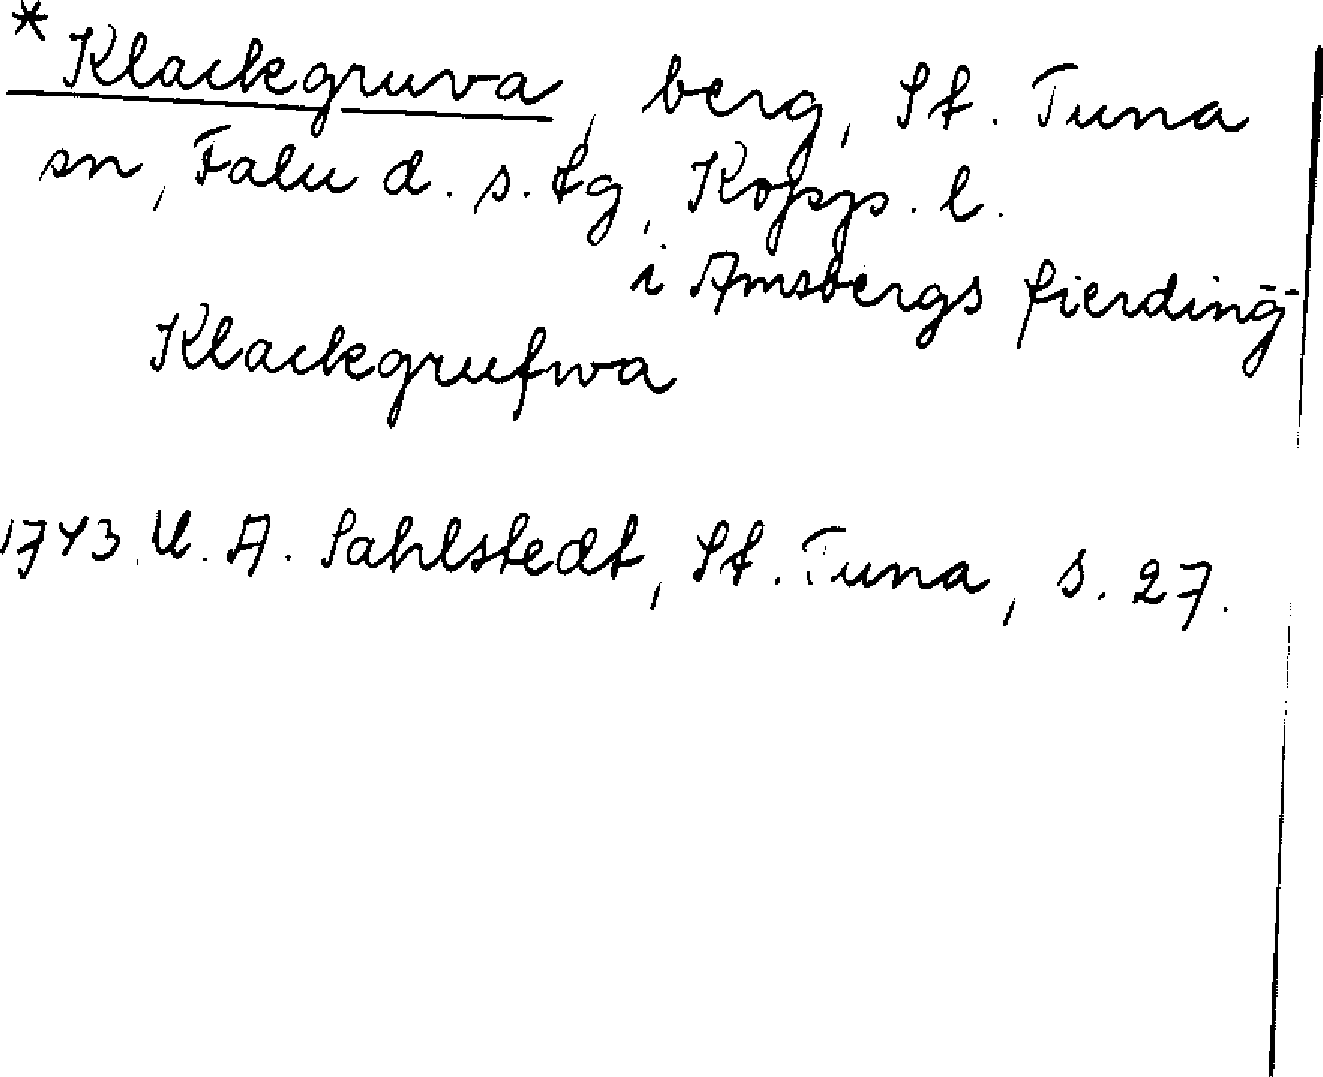 *Klackgruva, berg, St. Tuna
sn, Falu d. s. tg, Kopp. l.
i Amsbergs fierding
Klackgrufwa
1743. U. A. Sahlstedt, St. Tuna, s. 27.